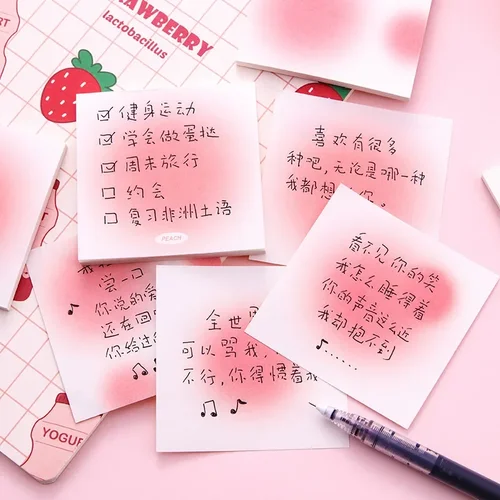 STRAWBERRY
lactobacillus
健身运动
学会做蛋挞
周末旅行
约会
复习非洲土语
PEACH
喜欢有很多
种吧,无论是哪一种
我都想
看不见你的笑
我怎么睡得着
你的声音这么近
我却抱不到
♪......
尝一口
你说的爱
还在回
你给过
全世界
可以骂我,
不行,你得惯着我
YOGUR